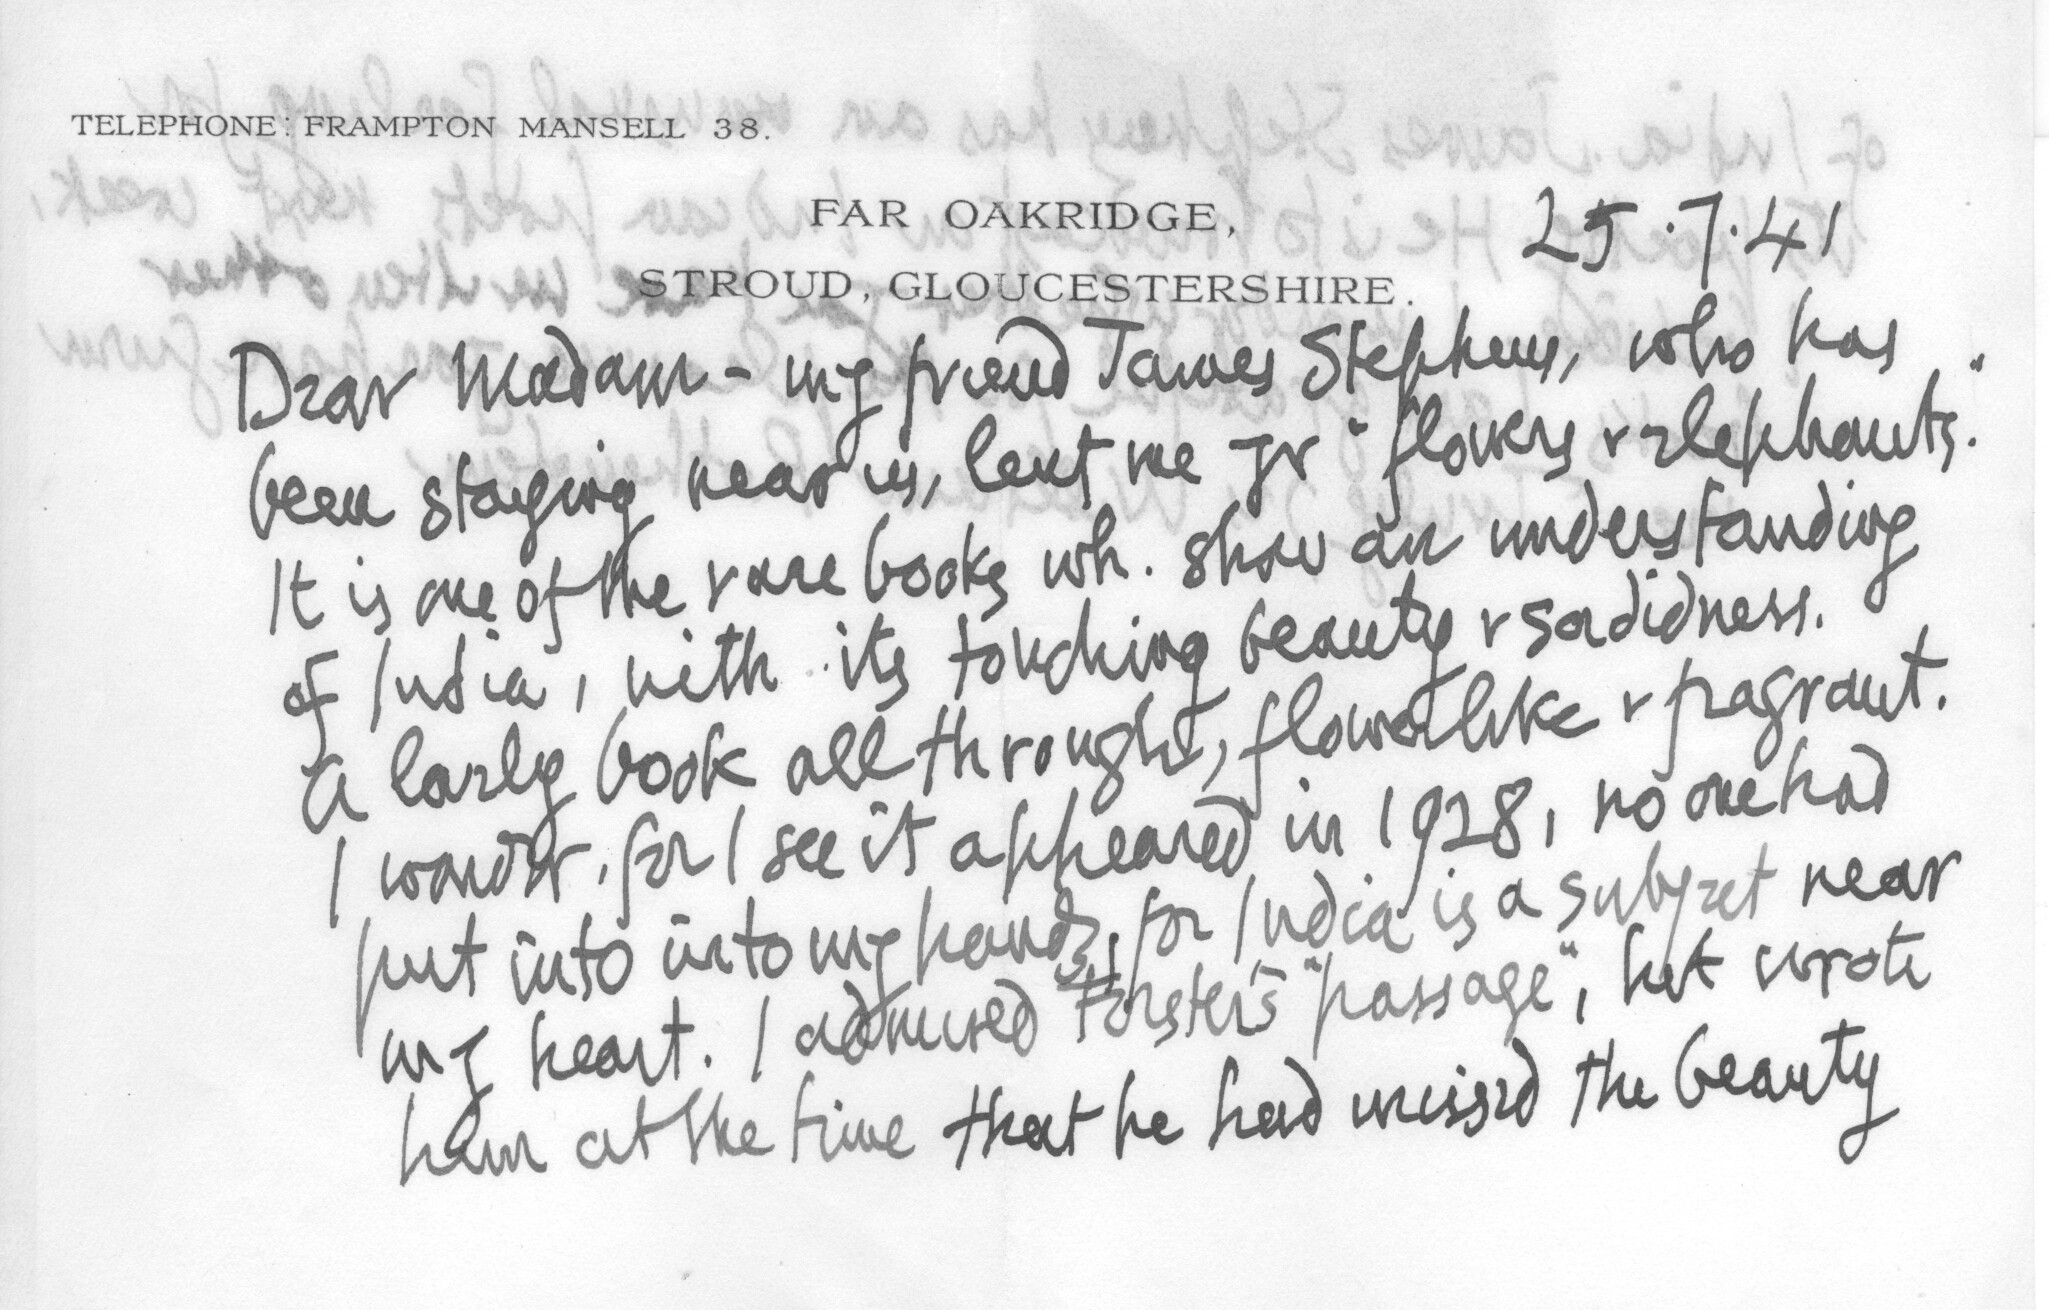 TELEPHONE: FRAMPTON MANSELL 38.
FAR OAKRIDGE,
STROUD, GLOUCESTERSHIRE.
25.7.41
Dear Madam - my friend James Stephens, who has
been staying near us, lent me yr "flowers & elephants."
It is one of the rare books wh. show an understanding
of India, with its touching beauty & sordidness.
A lovely book all through, flowerlike & fragrant.
I wonder, for I see it appeared in 1928, no one had
put into into my hands, for India is a subject near
my heart. I admired Forster's "passage", but wrote
him at the time that he had missed the beauty